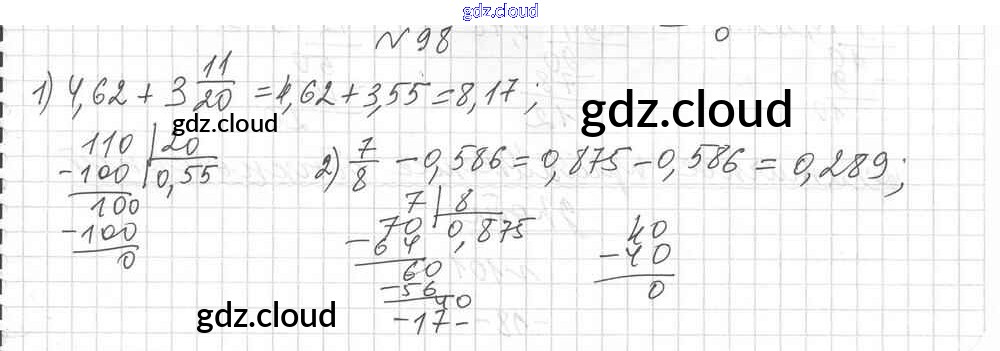 gdz.cloud
0
№98
1) 4,62 + 3 11/20 = 4,62 + 3,55 = 8,17;
gdz.cloud
gdz.cloud
110 | 20
-100 | 0,55
100
-100
0
2) 7/8 - 0,586 = 0,875 - 0,586 = 0,289;
7 | 8
70 | 0,875
-64
60
-56
40
-17-
40
-40
0
gdz.cloud